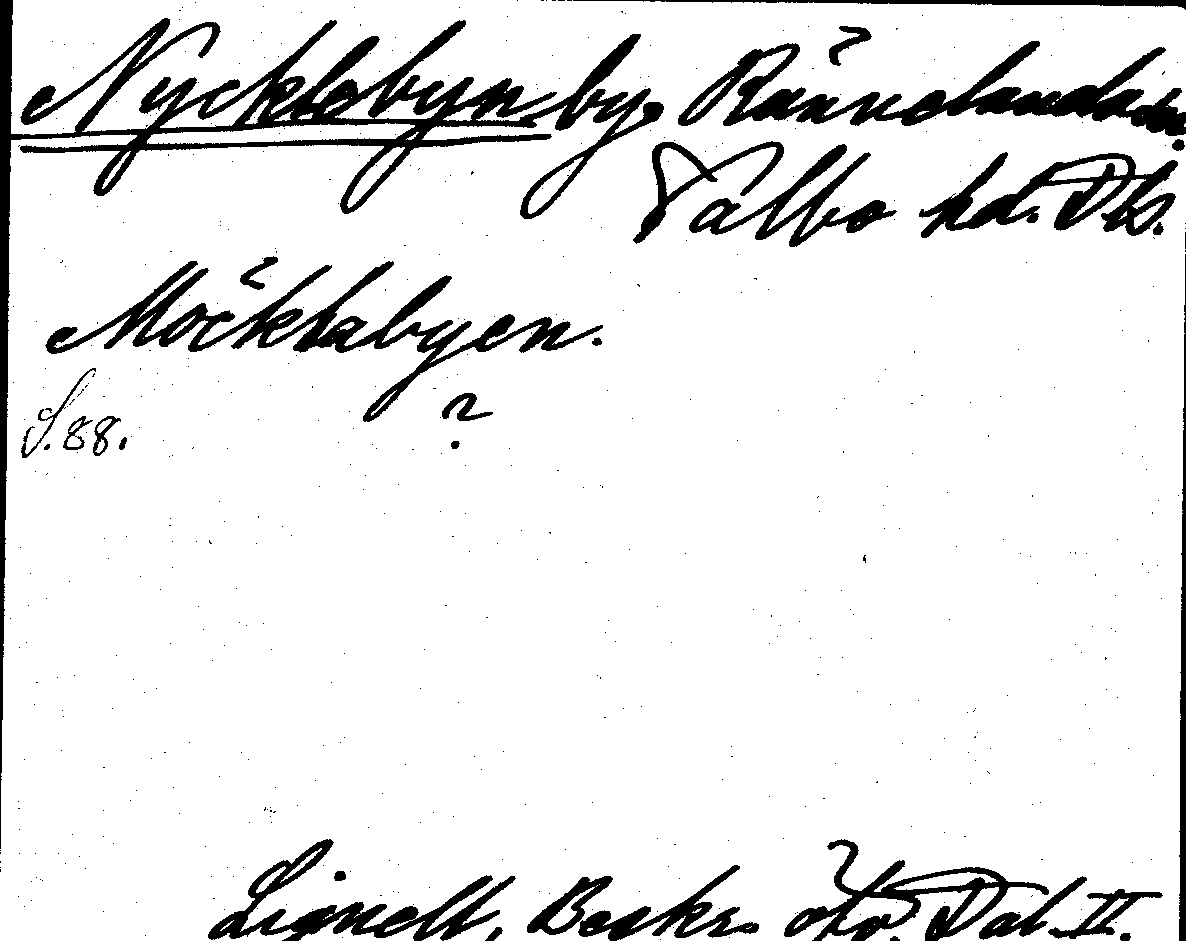 Nycklebyn by, Rännelanda sn.
Valbo hd. Dls.
Möcklabyen.
S. 88. ?
Lignell, Beskr. öfv. Dal. II.